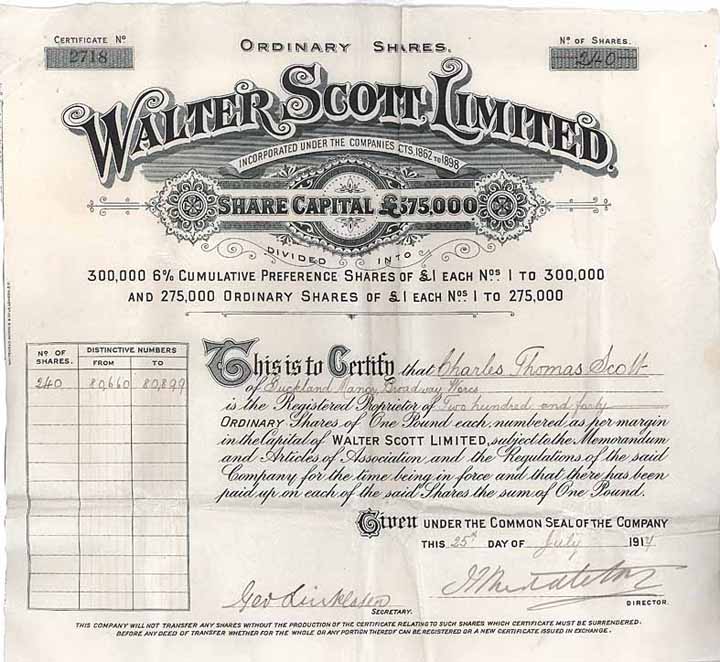 Certificate No
2718
Ordinary Shares.
No. of Shares.
240
Walter Scott, Limited.
Incorporated under the Companies Acts, 1862 to 1898
Share Capital £575,000
Divided into
300,000 6% Cumulative Preference Shares of £1 each Nos 1 to 300,000
and 275,000 Ordinary Shares of £1 each Nos 1 to 275,000
No of Shares. Distinctive Numbers
From To
240 80,660 80,899
This is to Certify that Charles Thomas Scott
of Buckland Manor Broadway Worcs
is the Registered Proprietor of Two hundred and forty
Ordinary Shares of One Pound each, numbered as per margin
in the Capital of Walter Scott Limited, subject to the Memorandum
and Articles of Association and the Regulations of the said
Company for the time being in force and that there has been
paid up on each of the said Shares the sum of One Pound.
Given under the Common Seal of the Company
this 25th day of July 1917
Secretary.
Director.
This Company will not transfer any shares without the production of the certificate relating to such shares which certificate must be surrendered.
Before any deed of transfer whether for the whole or any portion thereof can be registered or a new certificate issued in exchange.